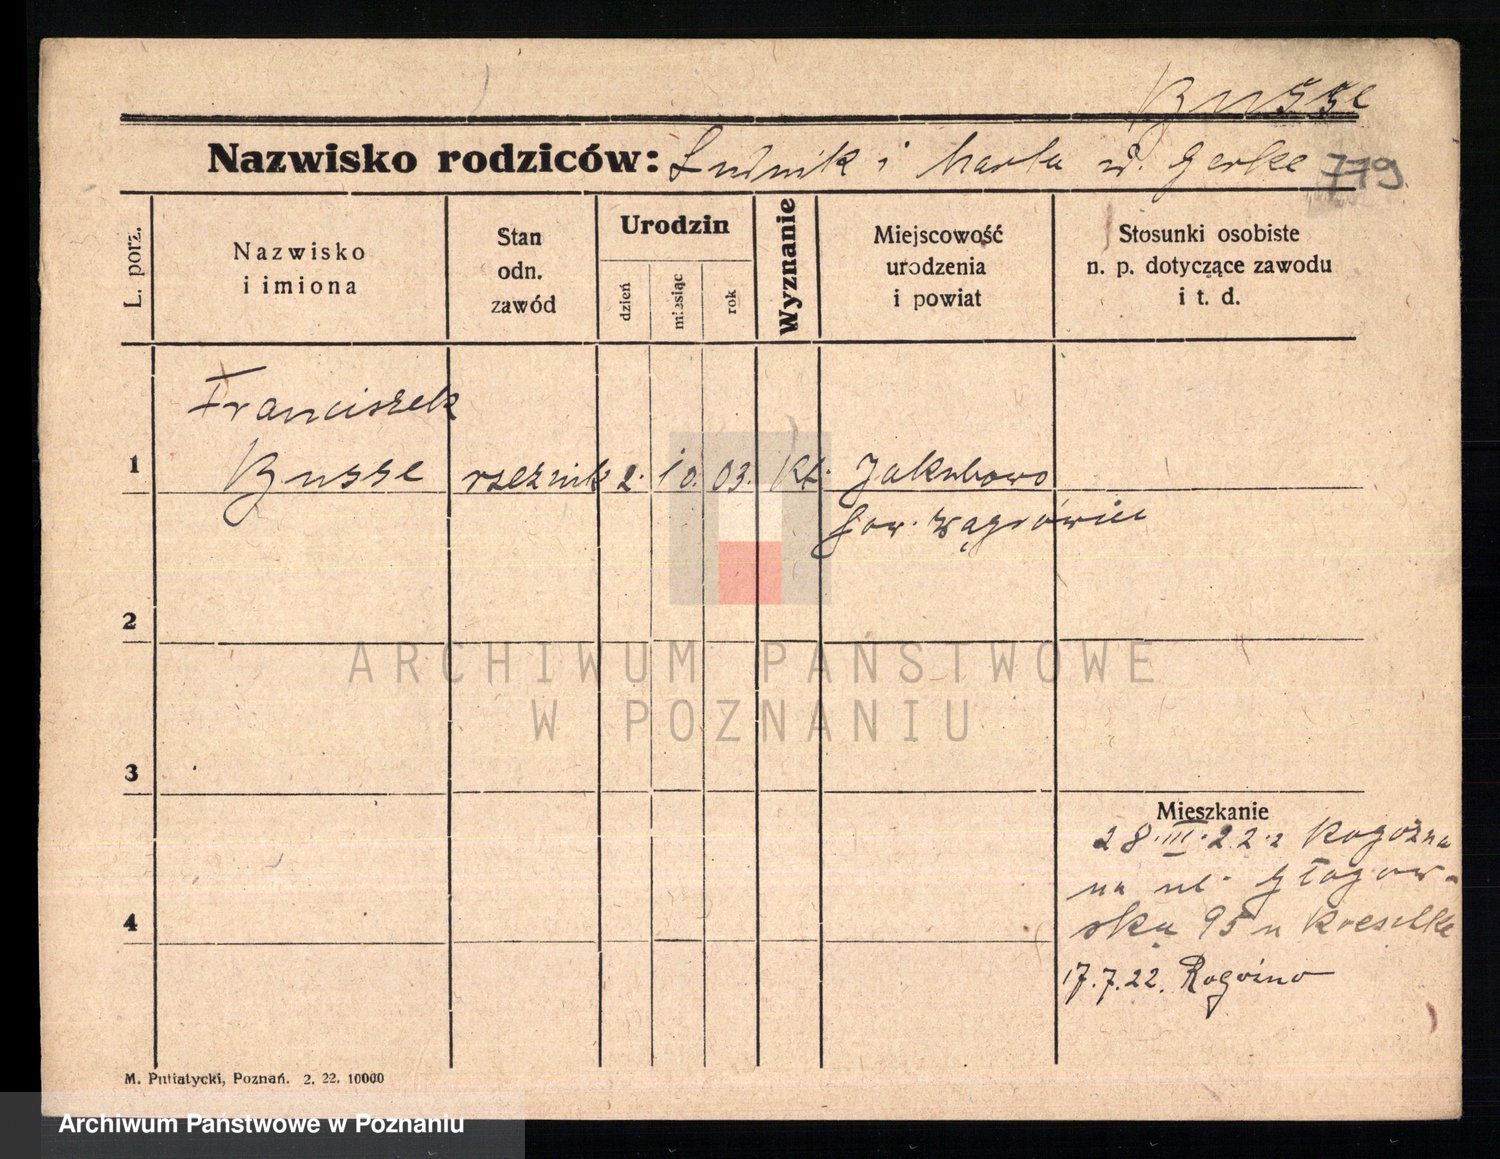 Busse
Nazwisko rodziców: Ludwik i Marta ur. Gerke 779
L. porz.
Nazwisko
i imiona
Stan
odn.
zawód
Urodzin
dzień
miesiąc
rok
Wyznanie
Miejscowość
urodzenia
i powiat
Stosunki osobiste
n. p. dotyczące zawodu
i t. d.
Franciszek
1 Busse rzeźnik 2. 10. 03. Kt. Jakubowo
pow. Wągrówiec
2
ARCHIWUM PAŃSTWOWE
W POZNANIU
3
Mieszkanie
28.III.22 z Rogoźna
na ul. Głogow-
4 ską 95 u
17.7.22. Rogoźno
M. Putiatycki, Poznań. 2. 22. 10000
Archiwum Państwowe w Poznaniu